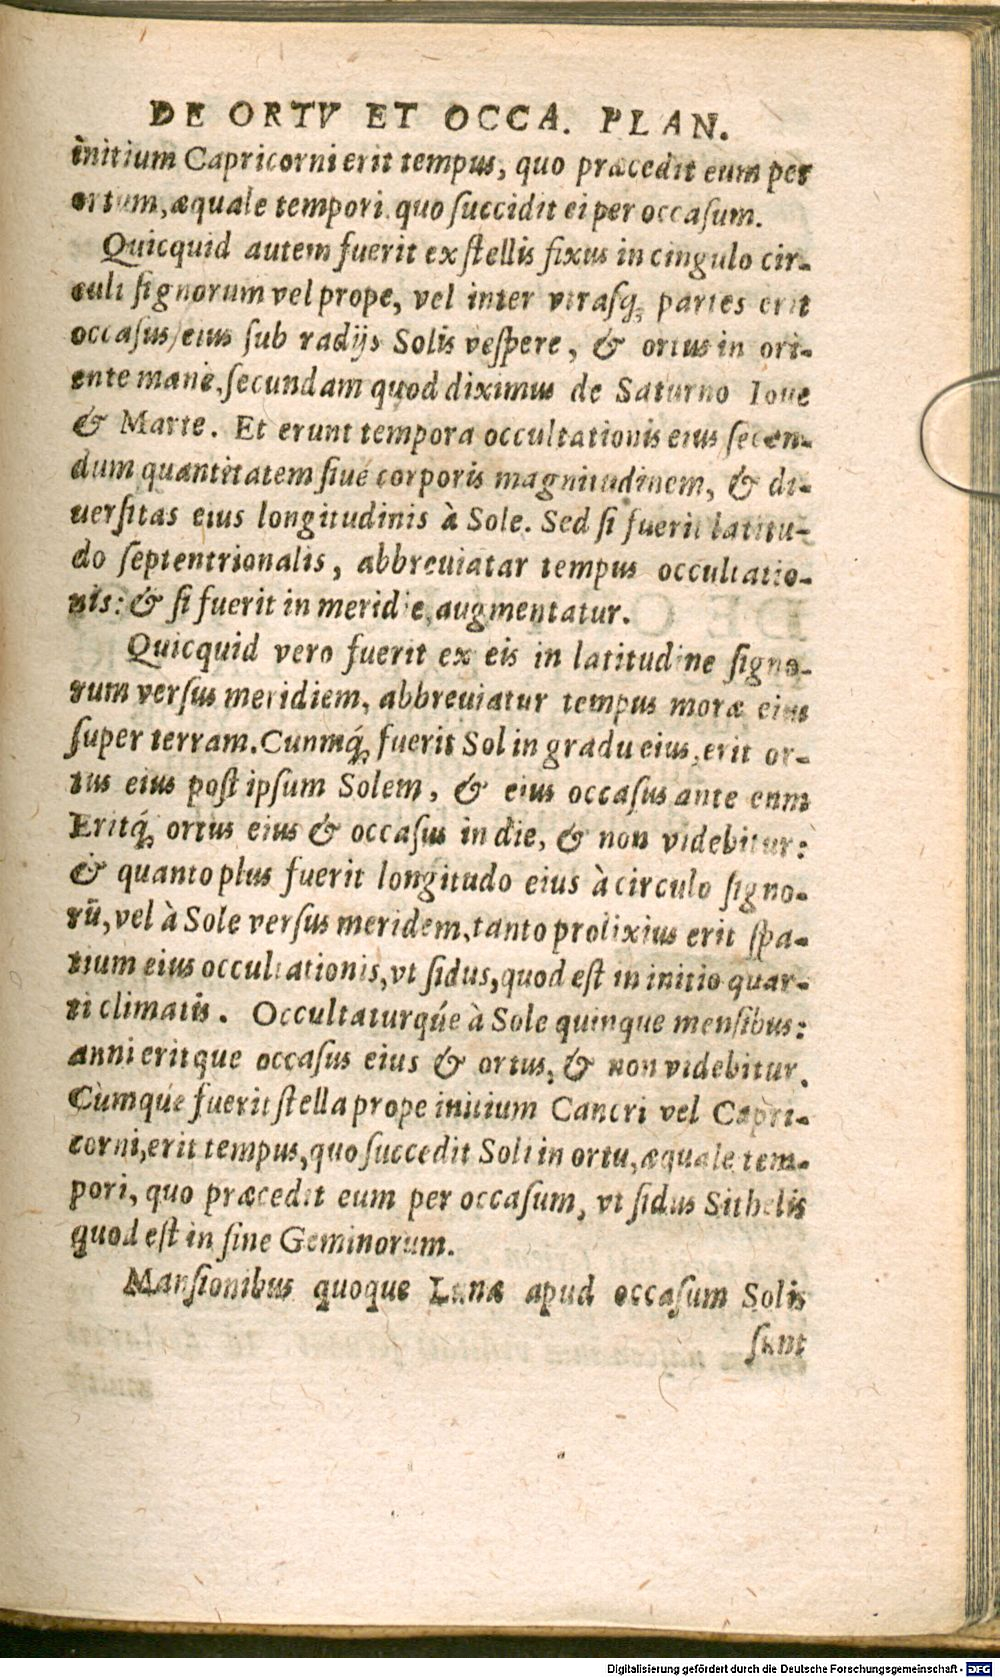 DE ORTV ET OCCA. PLAN.
initium Capricorni erit tempus, quo præcedit eum per
ortum, æquale tempori quo succidit ei per occasum.
Quicquid autem fuerit ex stellis fixus in cingulo cir-
culi signorum vel prope, vel inter vtrasq; partes erit
occasus eius sub radijs Solis vespere, & ortus in ori-
ente mane, secundam quod diximus de Saturno Ioue
& Marte. Et erunt tempora occultationis eius secun-
dum quantitatem siue corporis magnitudinem, & di-
uersitas eius longitudinis à Sole. Sed si fuerit latitu-
do septentrionalis, abbreuiatar tempus occultatio-
nis: & si fuerit in meridie, augmentatur.
Quicquid vero fuerit ex eis in latitudine signo-
rum versus meridiem, abbreuiatur tempus moræ eius
super terram. Cunmq́; fuerit Sol in gradu eius, erit or-
tus eius post ipsum Solem, & eius occasus ante enm
Eritq́; ortus eius & occasus in die, & non videbitur:
& quanto plus fuerit longitudo eius à circulo signo-
rū, vel à Sole versus meridem, tanto prolixius erit spa-
tium eius occultationis, vt sidus, quod est in initio quar-
ti climatis. Occultaturqúe à Sole quinque mensibus:
anni eritque occasus eius & ortus, & non videbitur.
Cùmqúe fuerit stella prope initium Cancri vel Capri-
corni, erit tempus, quo succedit Soli in ortu, æquale tem-
pori, quo præcedit eum per occasum, vt sidus Sithelis
quod est in fine Geminorum.
Mansionibus quoque Lunæ apud occasum Solis
sunt
Digitalisierung gefördert durch die Deutsche Forschungsgemeinschaft - DFG